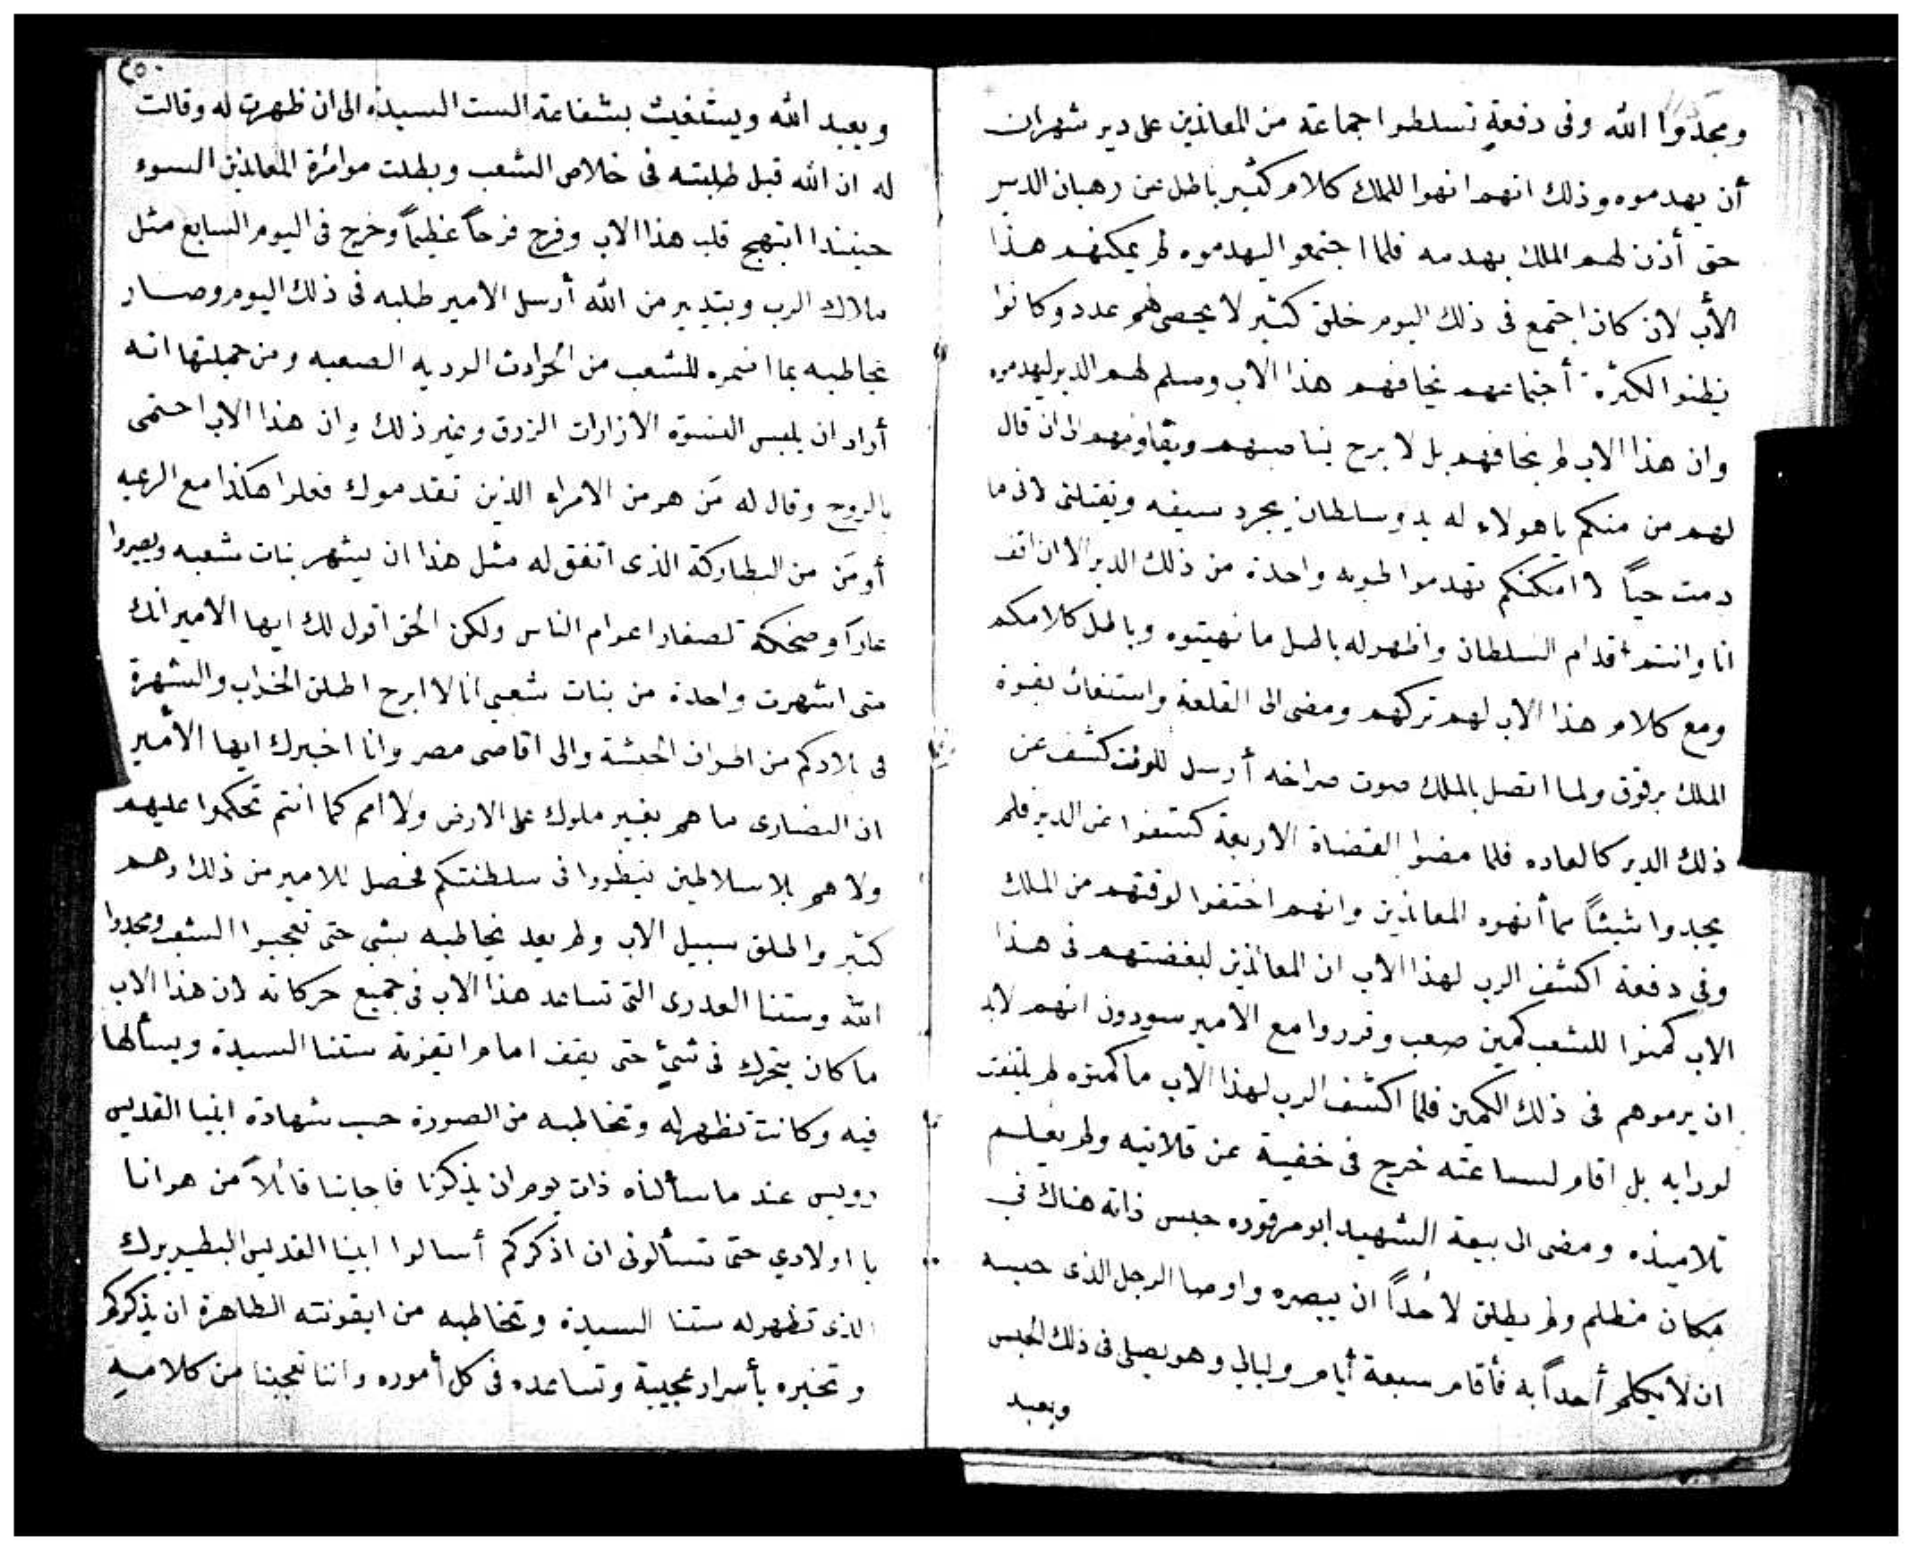 ومجدوا الله وفى دفعةٍ تسلطوا جماعة من المعاندين على دير شهران
أن يهدموه وذلك انهم انهوا للملك كلام كثير باطل عن رهبان الدير
حتى أذن لهم الملك بهدمه فلما اجتمعوا ليهدموه لم يمكنهم هذا
الأب لان كان اجتمع فى ذلك اليوم خلق كثير لا يحصى لهم عدد وكانوا
يظنوا لكثرة أجتماعهم يخافهم هذا الاب ويسلم لهم الدير ليهدموه
وان هذا الاب لم يخافهم بل لا برح يناصبهم ويقاومهم الى ان قال
لهم من منكم ياهولاء له يد وسلطان يجرد سيفه ويقتلنى لانى ما
دمت حياً لا امكنكم تهدموا طوبه واحدة من ذلك الدير الا ان اقف
انا وانتم قدام السلطان واظهر له باطل ما نهيتوه وباطل كلامكم
ومع كلام هذا الاب لهم تركهم ومضى الى القلعة واستغاث بقوة
الملك برقوق ولما اتصل بالملك صوت صراخه أرسل للوقت كشف عن
ذلك الدير كالعاده فلما مضوا القضاة الاربعة كشفوا عن الدير فلم
يجدوا شيئاً مما أنهوه المعاندين وانهم اختفوا لوقتهم من الملك
وفى دفعة اكشف الرب لهذا الاب ان المعاندين لبغضتهم فى هذا
الاب كمنوا للشعب كمين صعب وقرروا مع الامير سودون انهم لابد
ان يرموهم فى ذلك الكمين فلما اكشف الرب لهذا الاب ما كمنوه لم يلتفت
لورايه بل اقام لساعته خرج فى خفية عن قلايته ولم يعلم
تلاميذه ومضى الى بيعة الشهيد ابو مرقوره حبس ذاته هناك فى
مكان مظلم ولم يطلق لأحداً ان يبصره واوصا الرجل الذى حبسه
ان لا يكلم أحداً به فأقام سبعة أيام وليالى وهو يصلى فى ذلك الحبس
ويعبد
٢٥٠
ويعبد الله ويستغيث بشفاعة الست السيدة الى ان ظهرت له وقالت
له ان الله قبل طلبته فى خلاص الشعب وبطلت موامرة المعاندين السوء
حينئذا ابتهج قلب هذا الاب وفرح فرحاً عظيماً وخرج فى اليوم السابع مثل
ملاك الرب وبتدبير من الله أرسل الامير طلبه فى ذلك اليوم وصار
يخاطبه بما اضمره للشعب من الحوادث الرديه الصعبه ومن جملتها انه
أراد ان يلبس النسوة الازارات الزرق وغير ذلك وان هذا الاب احتمى
بالروح وقال له مَن هو من الامراء الذين تقدموك فعلوا هكذا مع الرعيه
أو مَن من البطاركة الذى اتفق له مثل هذا ان يشهر بنات شعبه ويصيروا
عاراً وضحكة لصغار اعوام الناس ولكن الحق اقول لك ايها الامير انك
متى اشهرت واحدة من بنات شعبى انا لا ابرح اطلق الخراب والشهرة
فى بلادكم من اطراف الحبشة والى اقاصى مصر وانا اخبرك ايها الأمير
ان النصارى ما هم بغير ملوك على الارض ولا امم كما انتم تحكموا عليهم
ولا هم بلا سلاطين ينظروا فى سلطنتكم فحصل للامير من ذلك وهم
كثير واطلق سبيل الاب ولم يعد يخاطبه بشى حتى تعجبوا الشعب ومجدوا
الله وستنا العدرى التى تساعد هذا الاب فى جميع حركاته لان هذا الاب
ما كان يتحرك فى شئ حتى يقف امام ايقونة ستنا السيدة ويسألها
فيه وكانت تظهر له وتخاطبه من الصورة حسب شهادة ابينا القديس
رويس عند ما سألناه ذات يوم ان يذكرنا فاجابنا قائلاً من هو انا
يا اولادي حتى تسألونى ان اذكركم أسالوا ابينا القديس البطيريرك
الذى تظهر له ستنا السيدة وتخاطبه من ايقونته الطاهرة ان يذكركم
وتخبره بأسرار عجيبة وتساعده فى كل أموره واننا تعجبنا من كلاميه